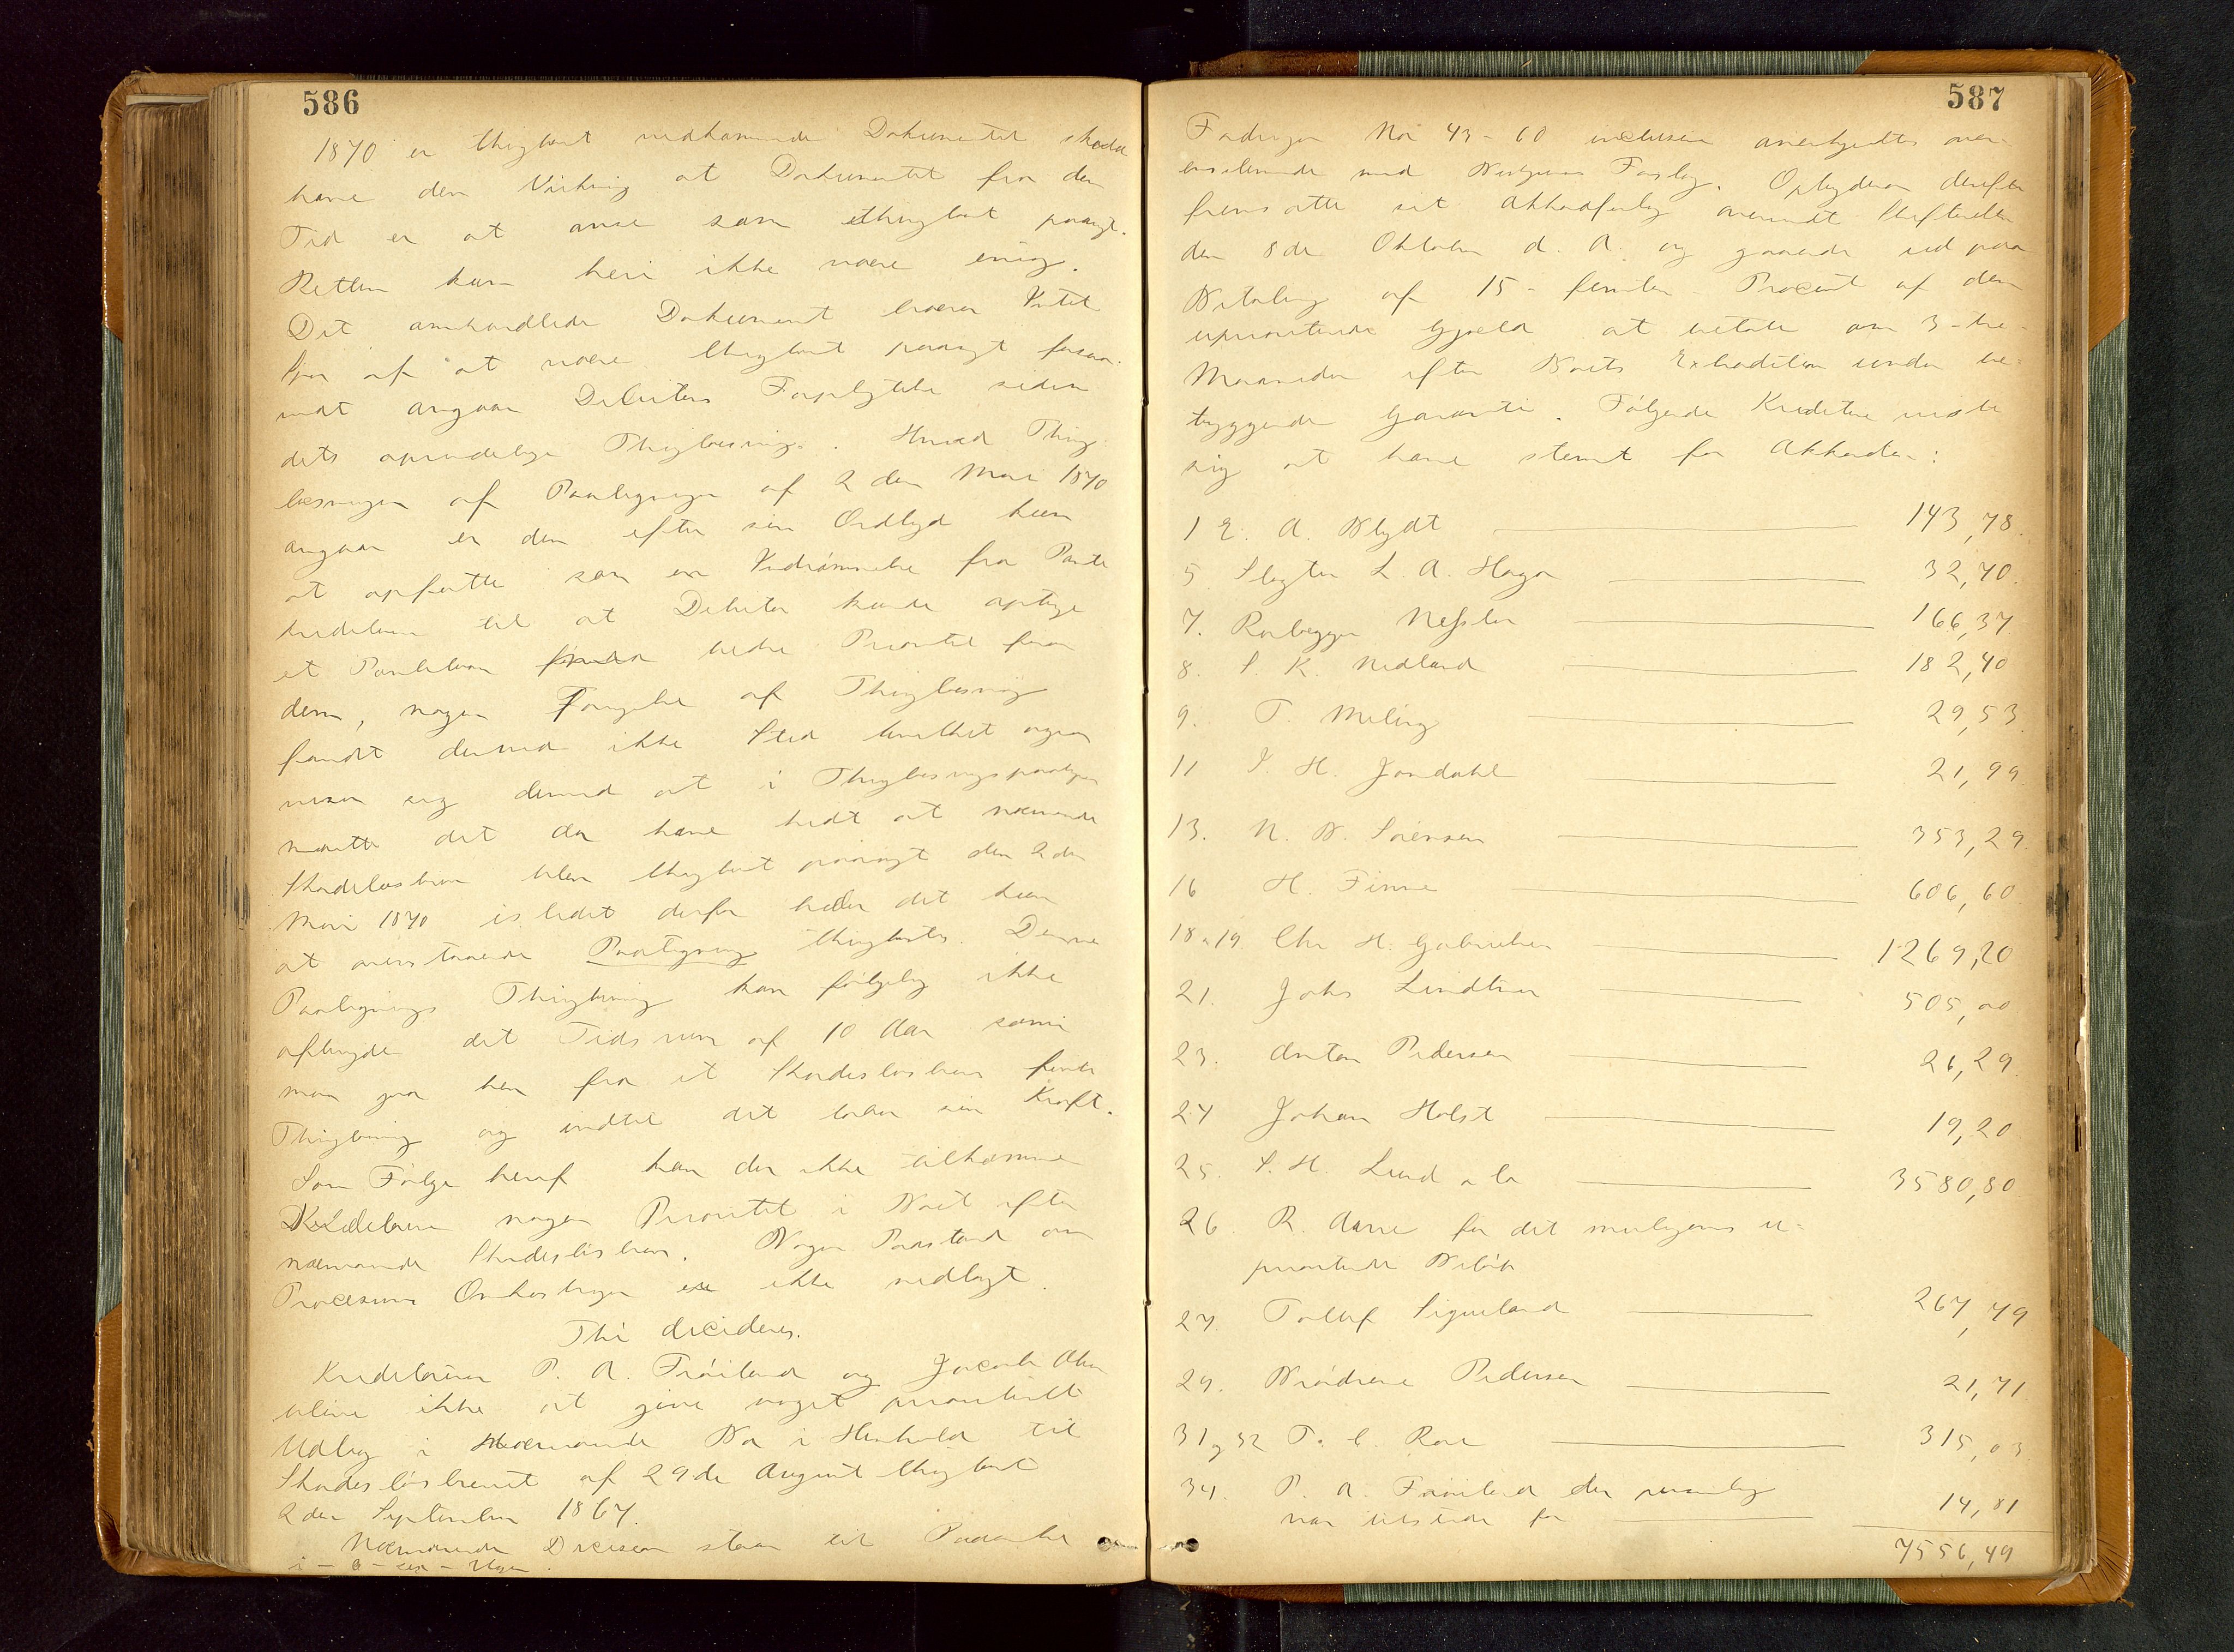 586
1870 er thinglæst vedkommende Dokumentet skulde
have den Virkning at Dokumentet fra den
Tid er at anse som thinglæst paany.
Retten kan heri ikke være enig.
Det omhandlede Dokument bærer intet
Spor af at være thinglæst paanyt forsaa-
vidt angaar Debitors Forpligtelse siden
dets oprindelige Thinglæsning. Hvad Thing-
læsningen af Paategningen af 2den Mai 1870
angaar er den efter sin Ordlyd kun
at opfatte som en Indrømmelse fra Pante
kreditoren til at Debitor kunde optage
et Pantelaan med bedre Prioritet foran
dem, nogen Fornyelse af Thinglæsning
fandt dermed ikke Sted hvilket ogsaa
viser sig derved at i Thinglæsningspaategnin
maatte det da have hedt at nævnte
Skadesløsbrev blev thinglæst paanyt den 2den
Mai 1870 istedet derfor heder det kun
at ovenstaaende Paategning thinglæstes. Denne
Paategnings Thinglæsning kan følgelig ikke
afbryde det Tidsrum af 10 Aar som
maa gaa hen fra et Skadesløsbrevs første
Thinglæsning og indtil det taber sin Kraft.
Som Følge heraf kan der ikke tilkomme
Kreditorerne nogen Prioritet i Boet efter
nævnte Skadesløsbrev. Nogen Paastand om
Procesens Omkostninger er ikke nedlagt.
Thi decideres.
Kreditorerne P. A. Frøiland og Jacob Olsen
blive ikke at give noget prioriteret
Udlæg i nærværende Bo i Henhold til
Skadesløsbrevet af 29de August thinglæst
2den September 1867.
Nærværende Decision staar til Paaanke
i - 6 - sex - Uger.
587
Fordringer No 43 - 60 inclusive anerkjendtes over-
ensstemmende med Bestyrerens Forslag. Opbyderen derefter
fremsatte sit Akkordforslag anmeldt Skifteretten
den 8de Oktober d. A. og gaaende ud paa
Betaling af 15 - femten Procent af den
uprioriterede Gjæld at betale om 3 - tre
Maaneder efter Boets Extradition under be-
tryggende Garanti. Følgende Kreditorer viste
sig at have stemt for Akkorden:
1 E. A. Blydt 143,78.
5. Slagter L. A. Haga 32,70.
7. Rørlægger Nessler 166,37
8. S. K. Nedland 182,40
9. T. Meling 29,53
11 I. H. Jondahl 21,99
13. N. B. Sørensen 353,29
16 H. Finne 606,60
18 & 19. Chr H. Gabrielsen 1269,20
21. Johs Lindtner 505,00
23. Anton Pedersen 26,29
24 Johan Holst 19,20
25. S. H. Lund & Co 3580,80
26 R. Aarre for det muligens u-
prioriterede Beløb
27. Tollef Sigveland 267,79
29. Brødrene Pedersen 21,71
31 og 32 T. C. Roe 315,03
34. P. A. Frøiland der personlig
var tilstede for 14,81
7556,49